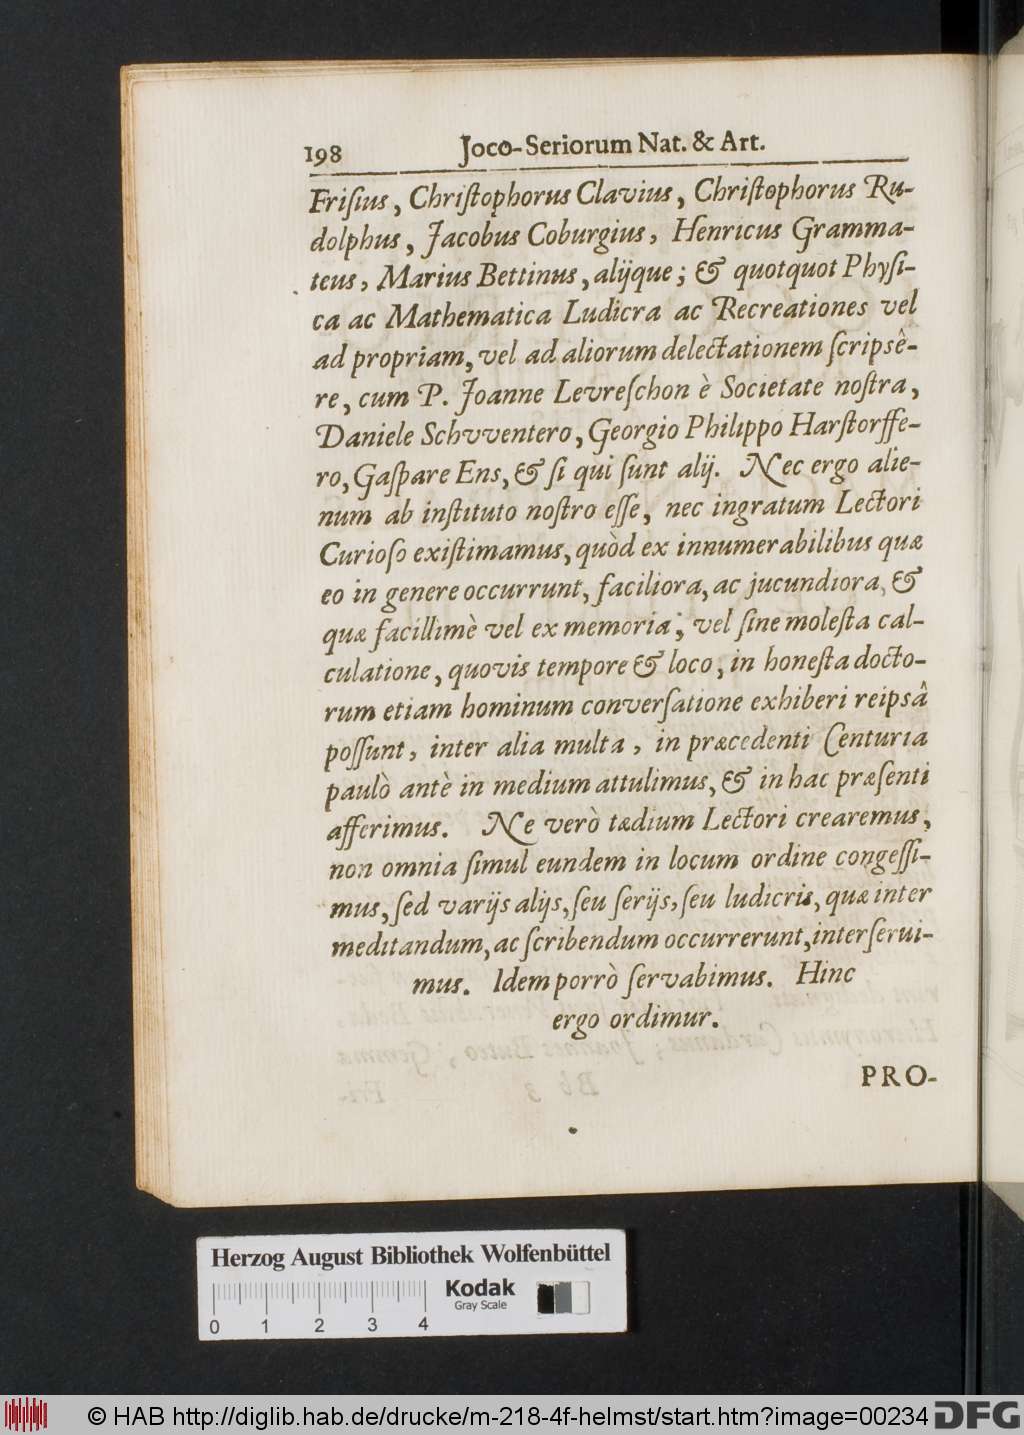 198 Joco-Seriorum Nat. & Art.
Friſius, Chriſtophorus Clavius, Chriſtophorus Ru-
dolphus, Jacobus Coburgius, Henricus Gramma-
teus, Marius Bettinus, alijque; & quotquot Phyſi-
ca ac Mathematica Ludicra ac Recreationes vel
ad propriam, vel ad aliorum delectationem ſcripsê-
re, cum P. Joanne Levreſchon è Societate noſtra,
Daniele Schvventero, Georgio Philippo Harſtorffe-
ro, Gaſpare Ens, & ſi qui ſunt alij. Nec ergo alie-
num ab inſtituto noſtro eſſe, nec ingratum Lectori
Curioſo exiſtimamus, quòd ex innumerabilibus quæ
eo in genere occurrunt, faciliora, ac jucundiora, &
quæ facillimè vel ex memoria, vel ſine moleſta cal-
culatione, quovis tempore & loco, in honeſta docto-
rum etiam hominum converſatione exhiberi reipsâ
poſſunt, inter alia multa, in præcedenti Centuria
paulò antè in medium attulimus, & in hac præſenti
afferimus. Ne verò tædium Lectori crearemus,
non omnia ſimul eundem in locum ordine congeſſi-
mus, ſed varijs alijs, ſeu ſerijs, ſeu ludicris, quæ inter
meditandum, ac ſcribendum occurrerunt, interſerui-
mus. Idem porrò ſervabimus. Hinc
ergo ordimur.
PRO-
Herzog August Bibliothek Wolfenbüttel
Kodak
Gray Scale
0 1 2 3 4
© HAB http://diglib.hab.de/drucke/m-218-4f-helmst/start.htm?image=00234 DFG